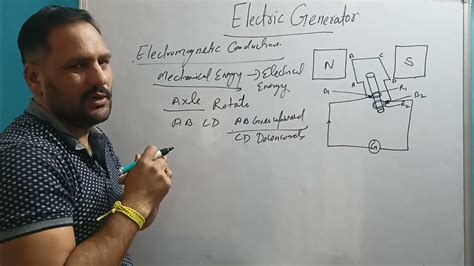 Electric Generator
Electromagnetic Conduction.
Mechanical Energy → Electrical
Energy
Axle Rotate
AB CD AB Goes upward
CD Downwards
N
S
B
C
A
D
B1
R1
B2
R2
G